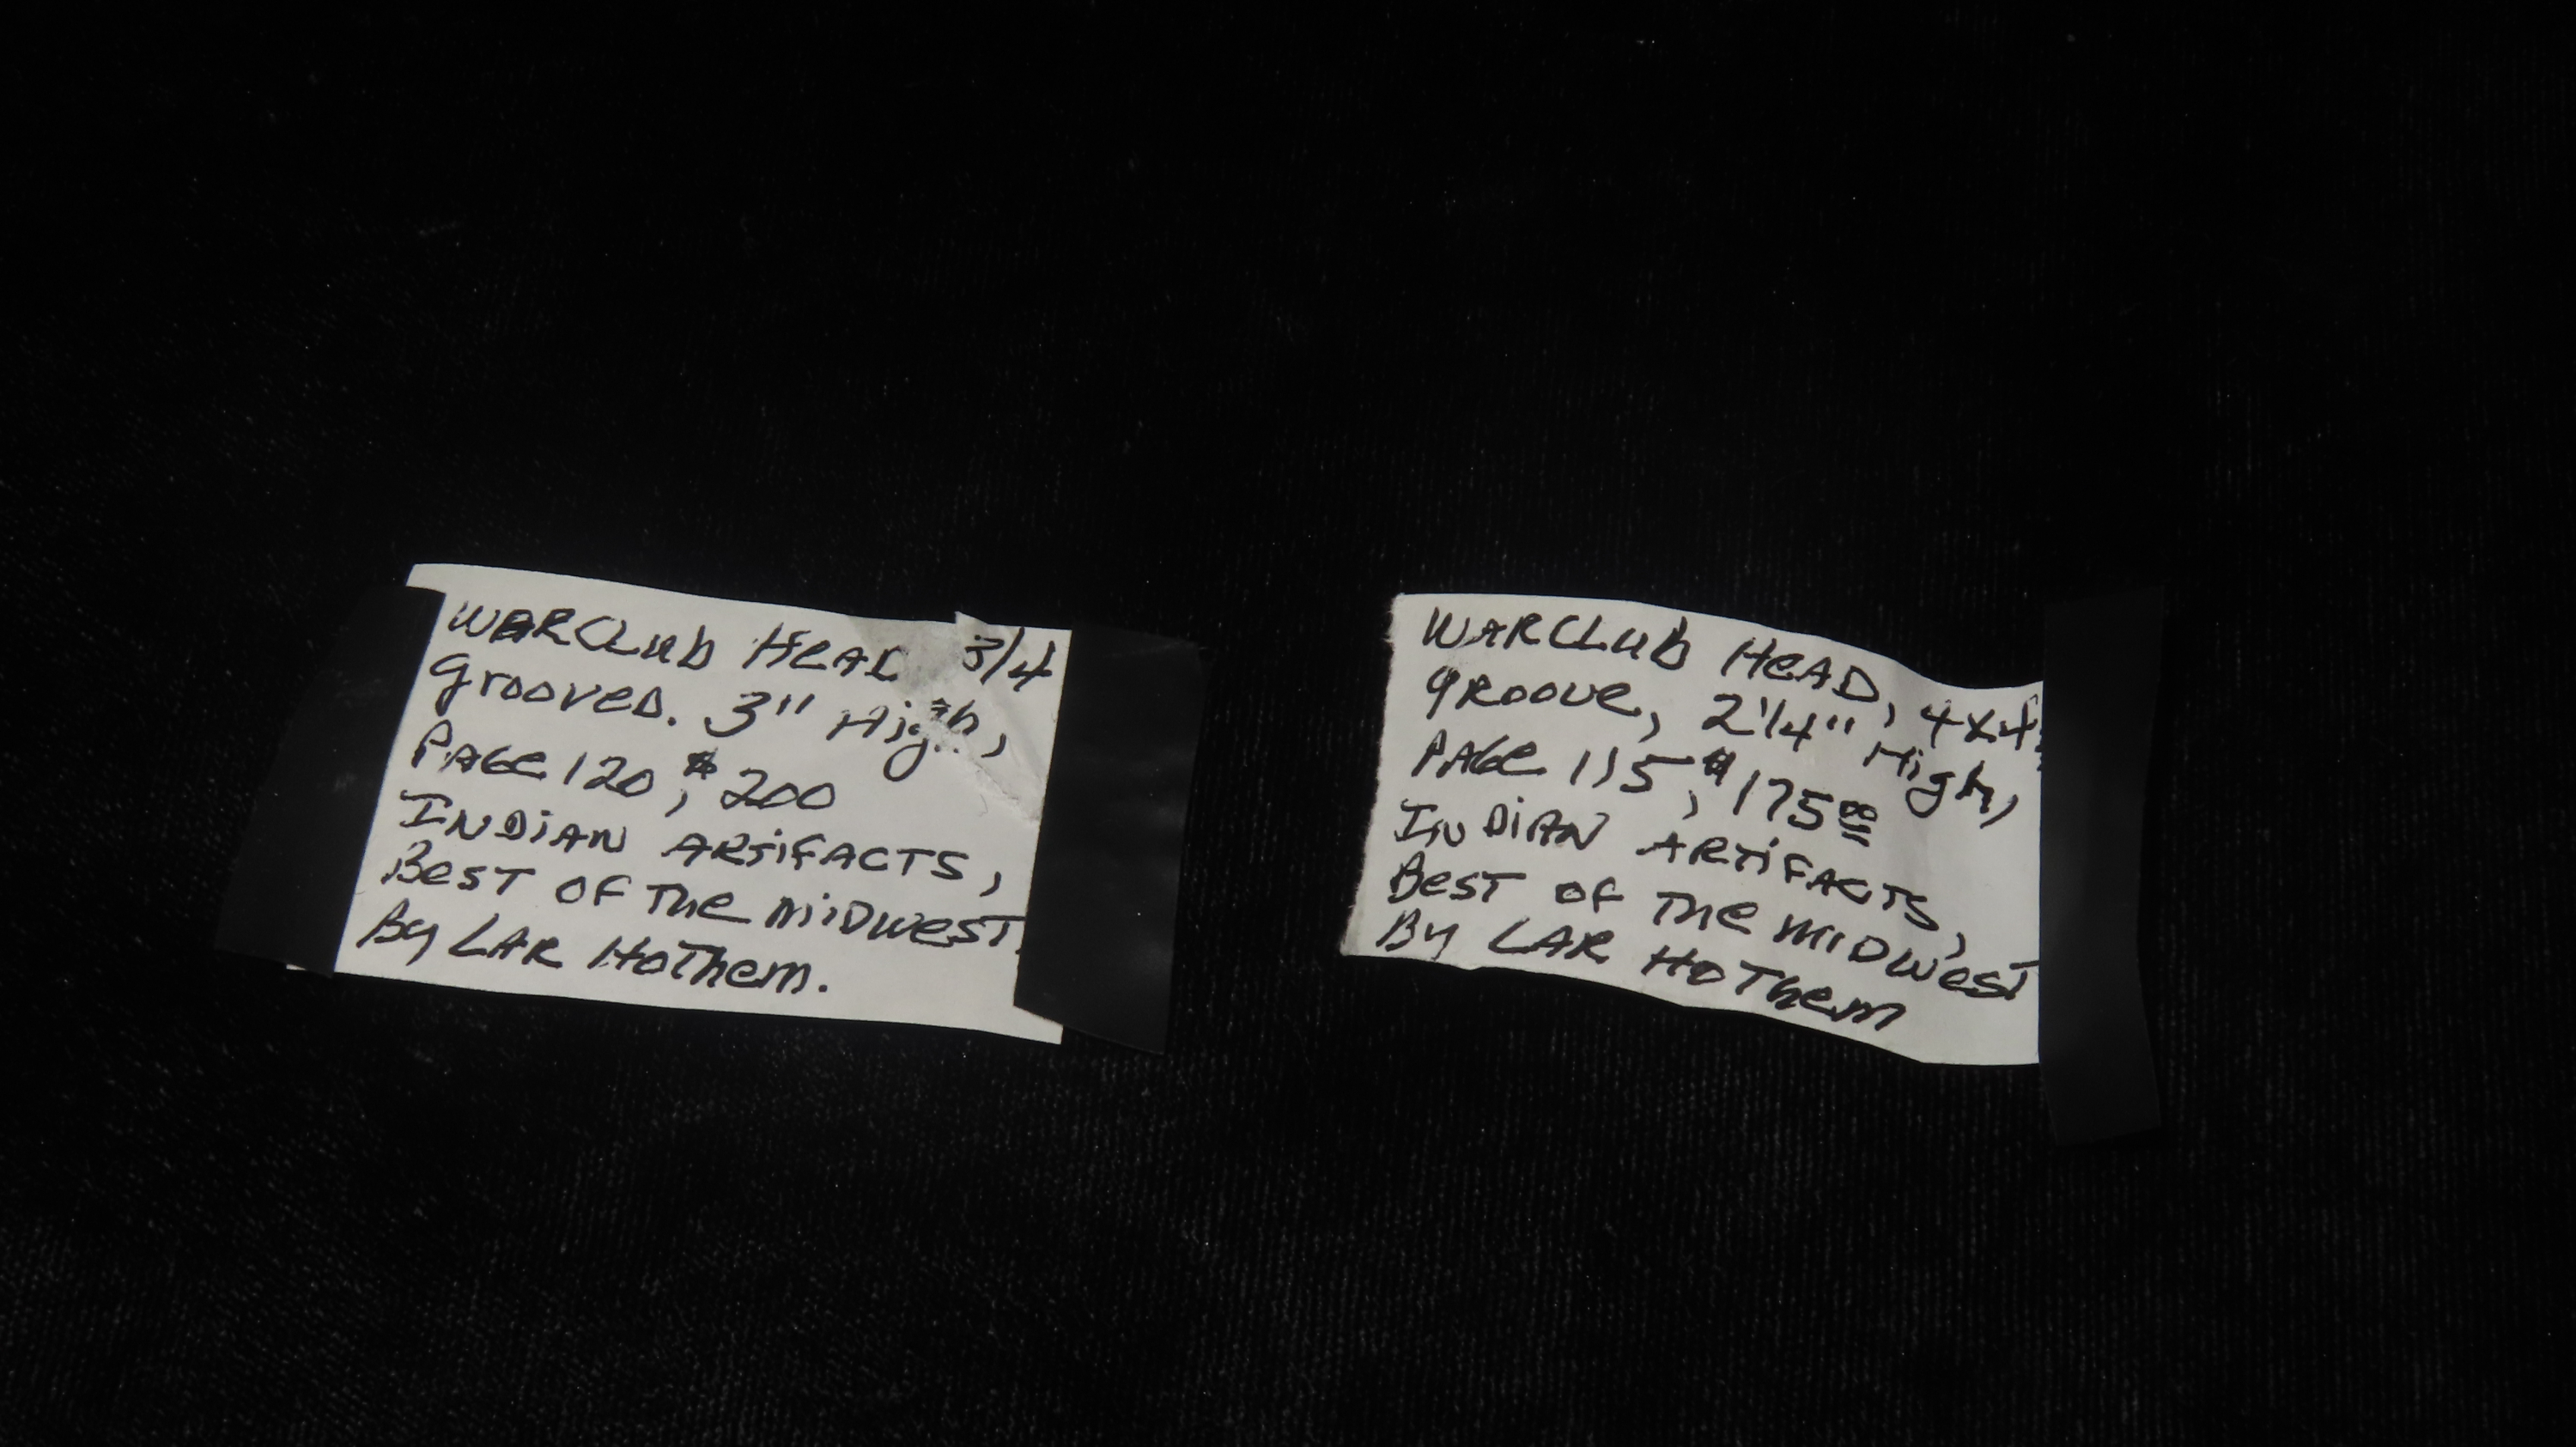 WARClub HeAD 3/4
grooved. 3" High,
PAGe 120, $200
INDiAN ARTiFACTS,
BesT OF The MiDwesT.
By LAR HoThem.
WARClub HeAD, 4x4
gRoove, 2 1/4" High,
PAGe 115, $175.00
INDiAN ARTiFACTS,
BesT OF The MiDwesT
By LAR HoThem